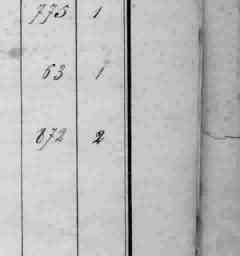 775 1
63 1
872 2